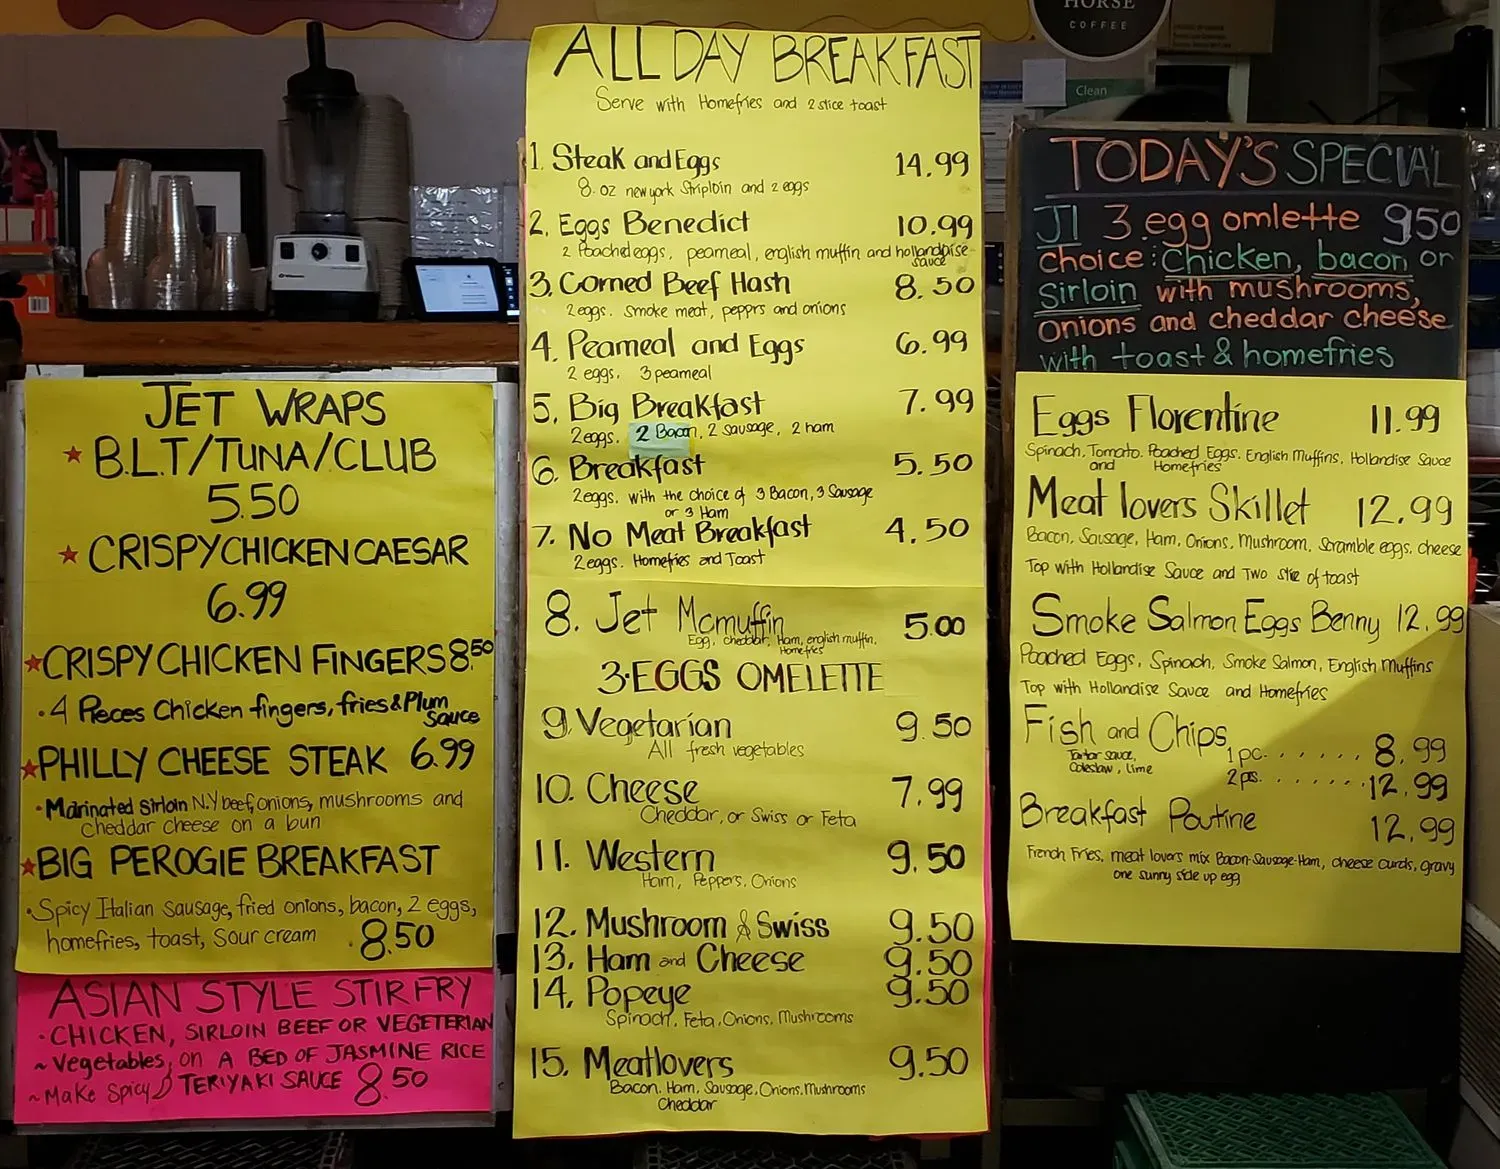 HORSE
COFFEE
Clean
JET WRAPS
B.L.T/TUNA/CLUB
5.50
CRISPY CHICKEN CAESAR
6.99
CRISPY CHICKEN FINGERS 8.50
4 Pieces Chicken fingers, fries & Plum
Sauce
PHILLY CHEESE STEAK 6.99
Marinated Sirloin N.Y beef, onions, mushrooms and
cheddar cheese on a bun
BIG PEROGIE BREAKFAST
Spicy Italian Sausage, fried onions, bacon, 2 eggs,
homefries, toast, Sour cream 8.50
ASIAN STYLE STIR FRY
CHICKEN, SIRLOIN BEEF OR VEGETERIAN
~ Vegetables, on A BED OF JASMINE RICE
~ Make Spicy TERIYAKI SAUCE 8.50
ALL DAY BREAKFAST
Serve with Homefries and 2 slice toast
1. Steak and Eggs 14.99
8. oz new york Striploin and 2 eggs
2. Eggs Benedict 10.99
2 Poached eggs, peameal, english muffin and hollandaise
sauce
3. Corned Beef Hash 8.50
2 eggs. smoke meat, pepprs and onions
4. Peameal and Eggs 6.99
2 eggs. 3 peameal
5. Big Breakfast 7.99
2 eggs. 2 Bacon, 2 sausage, 2 ham
6. Breakfast 5.50
2 eggs. with the choice of 3 Bacon, 3 Sausage
or 3 Ham
7. No Meat Breakfast 4.50
2 eggs. Homefries and Toast
8. Jet Mcmuffin 5.00
Egg, cheddar, Ham, english muffin,
Homefries
3-EGGS OMELETTE
9. Vegetarian 9.50
All fresh vegetables
10. Cheese 7.99
Cheddar, or Swiss or Feta
11. Western 9.50
Ham, Peppers, Onions
12. Mushroom & Swiss 9.50
13. Ham and Cheese 9.50
14. Popeye 9.50
Spinach, Feta, Onions, Mushrooms
15. Meatlovers 9.50
Bacon, Ham, Sausage, Onions, Mushrooms
Cheddar
TODAY'S SPECIAL
J1 3 egg omlette 950
choice: Chicken, bacon or
Sirloin with mushrooms,
onions and cheddar cheese
with toast & homefries
Eggs Florentine 11.99
Spinach, Tomato, Poached Eggs, English Muffins, Hollandise Sauce
and Homefries
Meat lovers Skillet 12.99
Bacon, Sausage, Ham, Onions, Mushroom, Scramble eggs, cheese
Top with Hollandise Sauce and Two slice of toast
Smoke Salmon Eggs Benny 12.99
Poached Eggs, Spinach, Smoke Salmon, English Muffins
Top with Hollandise Sauce and Homefries
Fish and Chips
Tartar sauce,
Coleslaw, Lime
1 pc. . . . . . . 8.99
2 pcs. . . . . . . 12.99
Breakfast Poutine 12.99
French Fries, meat lovers mix Bacon-Sausage-Ham, cheese curds, gravy
one sunny side up egg